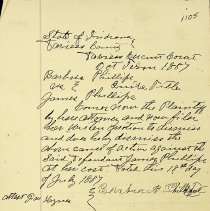 1105
State of Indiana
Daviess County
Daviess Circuit Court
Oct Term 1887
Barbara Phillips
vs
James Phillips
Comes Now the Plaintiff
by her attorney and now files
her written motion to dismiss
and does hereby dismiss the
above cause of action against the
said defendant James Phillips
at her cost. this 18th day
of 1887
Barbara A Phillips
attest